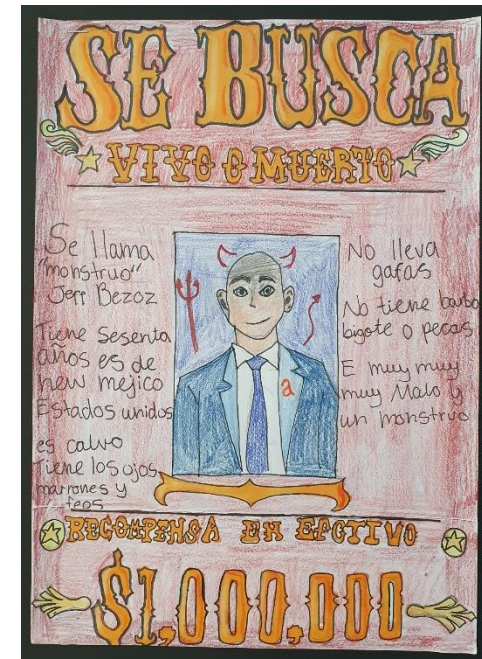 SE BUSCA
VIVO O MUERTO
Se llama
"monstruo"
Jeff Bezoz
Tiene Sesenta
años es de
new mejico
Estados unidos
es calvo
Tiene los ojos
marrones y
feos
a
No lleva
gafas
No tiene barba
bigote o pecas
E muy muy
muy Malo y
un monstruo
RECOMPENSA EN EFCTIVO
$1,000,000